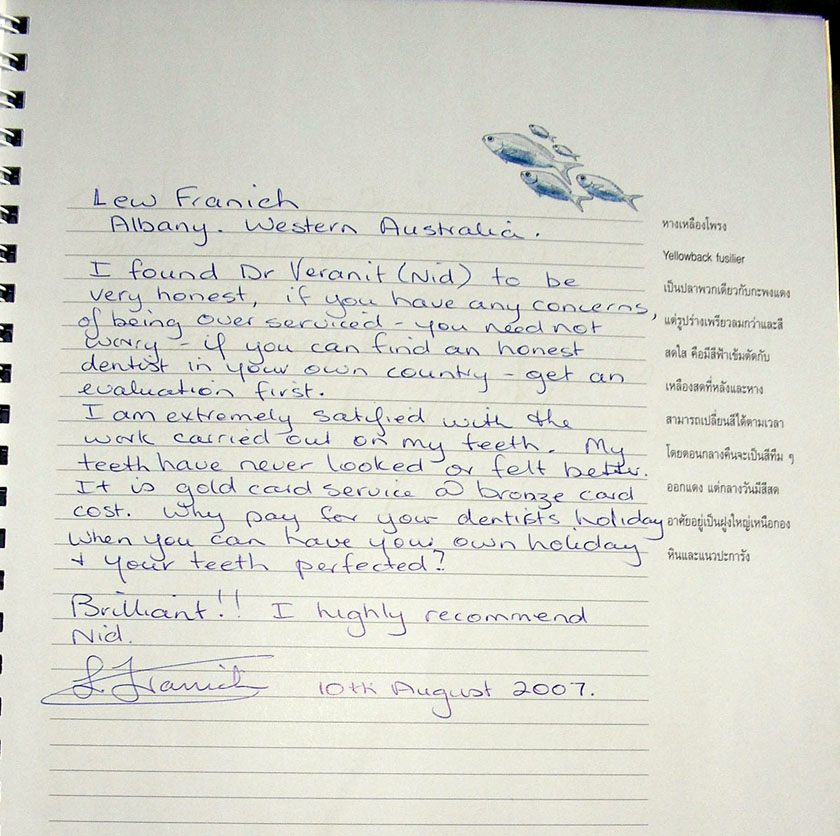 Lew Franich
Albany. Western Australia.
I found Dr Veranit (Nid) to be
very honest, if you have any concerns,
of being over serviced - you need not
worry - if you can find an honest
dentist in your own country - get an
evaluation first.
I am extremely satified with the
work carried out on my teeth. My
teeth have never looked or felt better.
It is gold card service @ bronze card
cost. Why pay for your dentists holiday
when you can have your own holiday
+ your teeth perfected?
Brilliant!! I highly recommend
Nid.
L. Franich 10th August 2007.
หางเหลืองโพรง
Yellowback fusilier
เป็นปลาพวกเดียวกับกะพงแดง
แต่รูปร่างเพรียวลมกว่าและสี
สดใส คือมีสีฟ้าเข้มตัดกับ
เหลืองสดที่หลังและหาง
สามารถเปลี่ยนสีได้ตามเวลา
โดยตอนกลางคืนจะเป็นสีทึม ๆ
ออกแดง แต่กลางวันมีสีสด
อาศัยอยู่เป็นฝูงใหญ่เหนือกอง
หินและแนวปะการัง